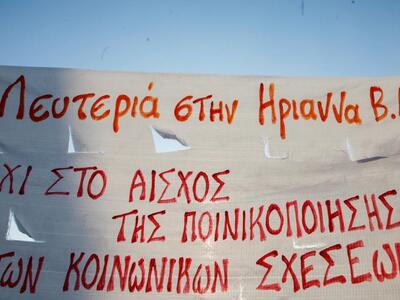 Λευτεριά στην Ηριαννα Β.
ΧΙ ΣΤΟ ΑΙΣΧΟΣ
ΤΗΣ ΠΟΙΝΙΚΟΠΟΙΗΣΗΣ
ΤΩΝ ΚΟΙΝΩΝΙΚΩΝ ΣΧΕΣΕΩΝ